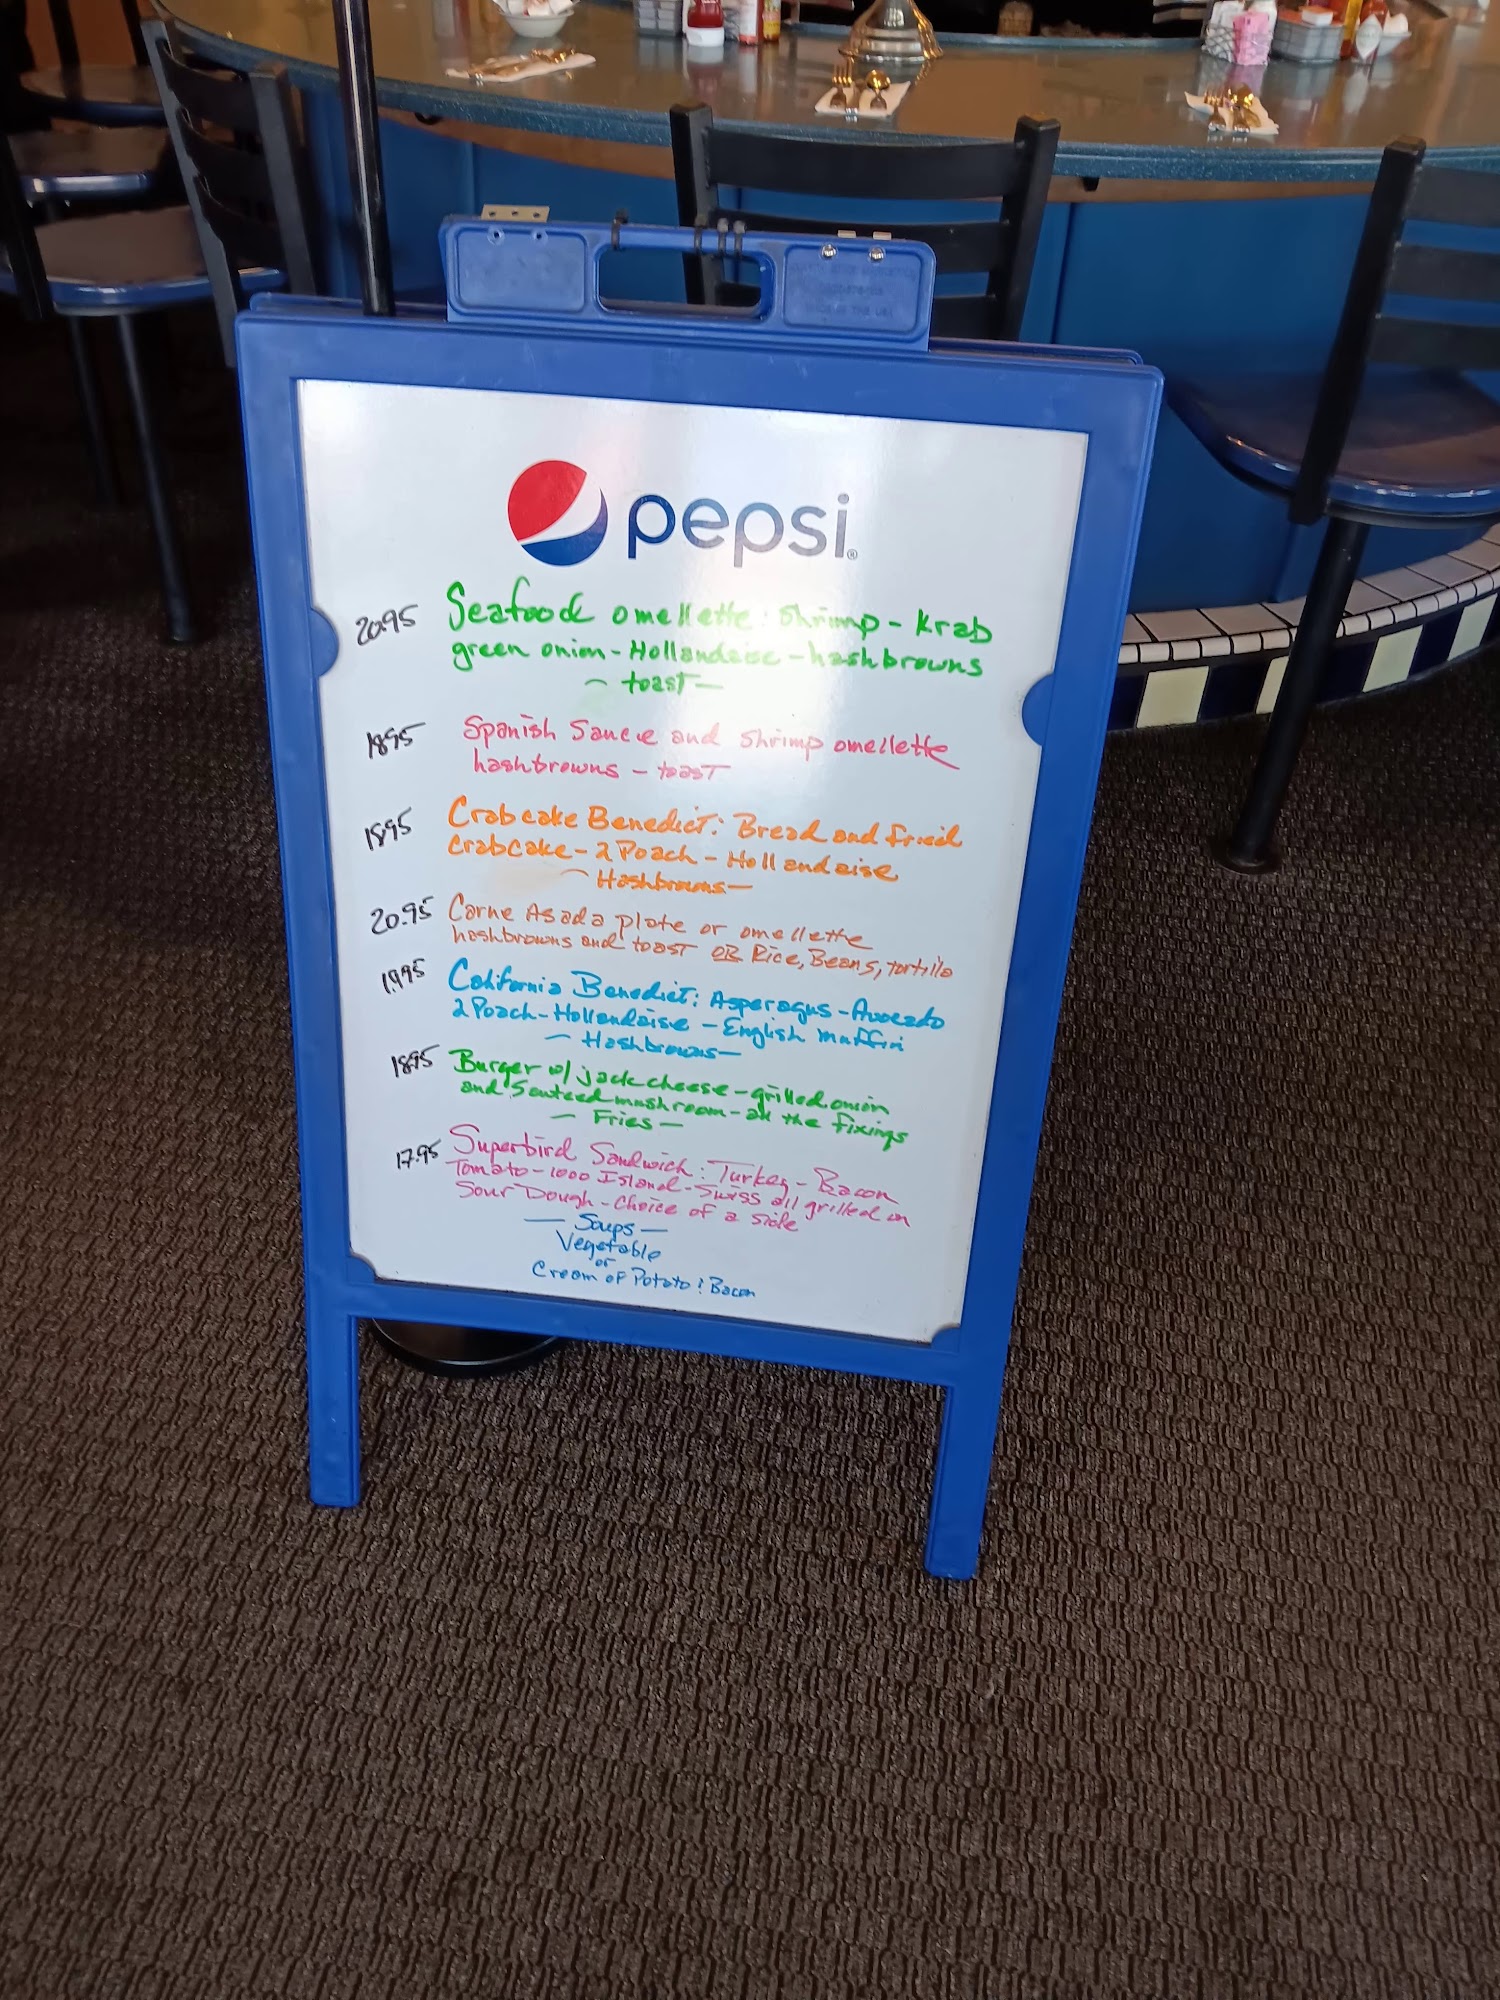 pepsi
20.95 Seafood omellette: Shrimp - Krab
green onion - Hollandaise - hashbrowns
- toast -
18.95 Spanish Sauce and shrimp omellette
hashbrowns - toast
18.95 Crabcake Benedict: Bread and fried
Crabcake - 2 Poach - Hollandaise
- Hashbrowns -
20.95 Carne Asada plate or omellette
hashbrowns and toast OR Rice, Beans, tortilla
19.95 California Benedict: Asparagus - Avocado
2 Poach - Hollandaise - English muffin
- Hashbrowns -
18.95 Burger w/ jack cheese - grilled onion
and Sauteed mushroom - all the fixings
- Fries -
17.95 Superbird Sandwich: Turkey - Bacon
Tomato - 1000 Island - Swiss all grilled on
Sour Dough - Choice of a side
- Soups -
Vegetable
or
Cream of Potato & Bacon